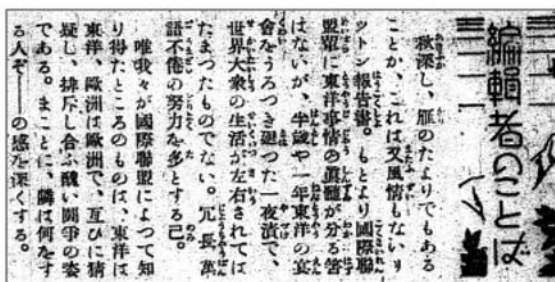 編輯者のことば
秋深し、雁のたよりでもある
ことか、これは又風情もないリ
ツトン報告書。もとより國際聯
盟輩に東洋事情の眞髓が分る筈
はないが、半歳や一年東洋の宴
會をうろつき廻つた一夜漬で、
世界大衆の生活が左右されては
たまつたものでない。冗長萬
語不倦の努力を多とする已。
唯我々が國際聯盟によつて知
り得たところのものは、東洋は
東洋、歐洲は歐洲で、互ひに猜
疑し、排斥し合ふ醜い鬪爭の姿
である。まことに、隣は何をす
る人ぞ――の感を深くする。